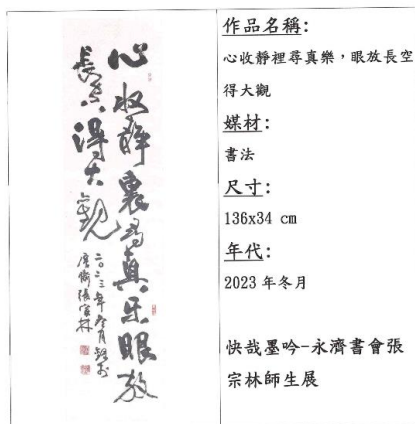 心收静裏尋真樂眼放
長空得大觀
二〇二三年冬月
張宗林
作品名稱:
心收靜裡尋真樂，眼放長空
得大觀
媒材:
書法
尺寸:
136x34 cm
年代:
2023 年冬月
快哉墨吟-永濟書會張
宗林師生展